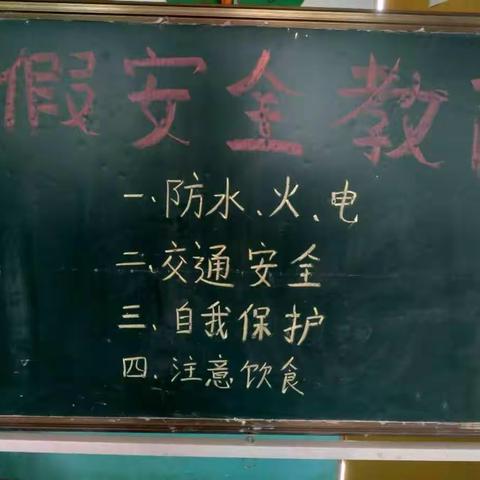 假安全教
一、防水、火、电
二、交通安全
三、自我保护
四、注意饮食